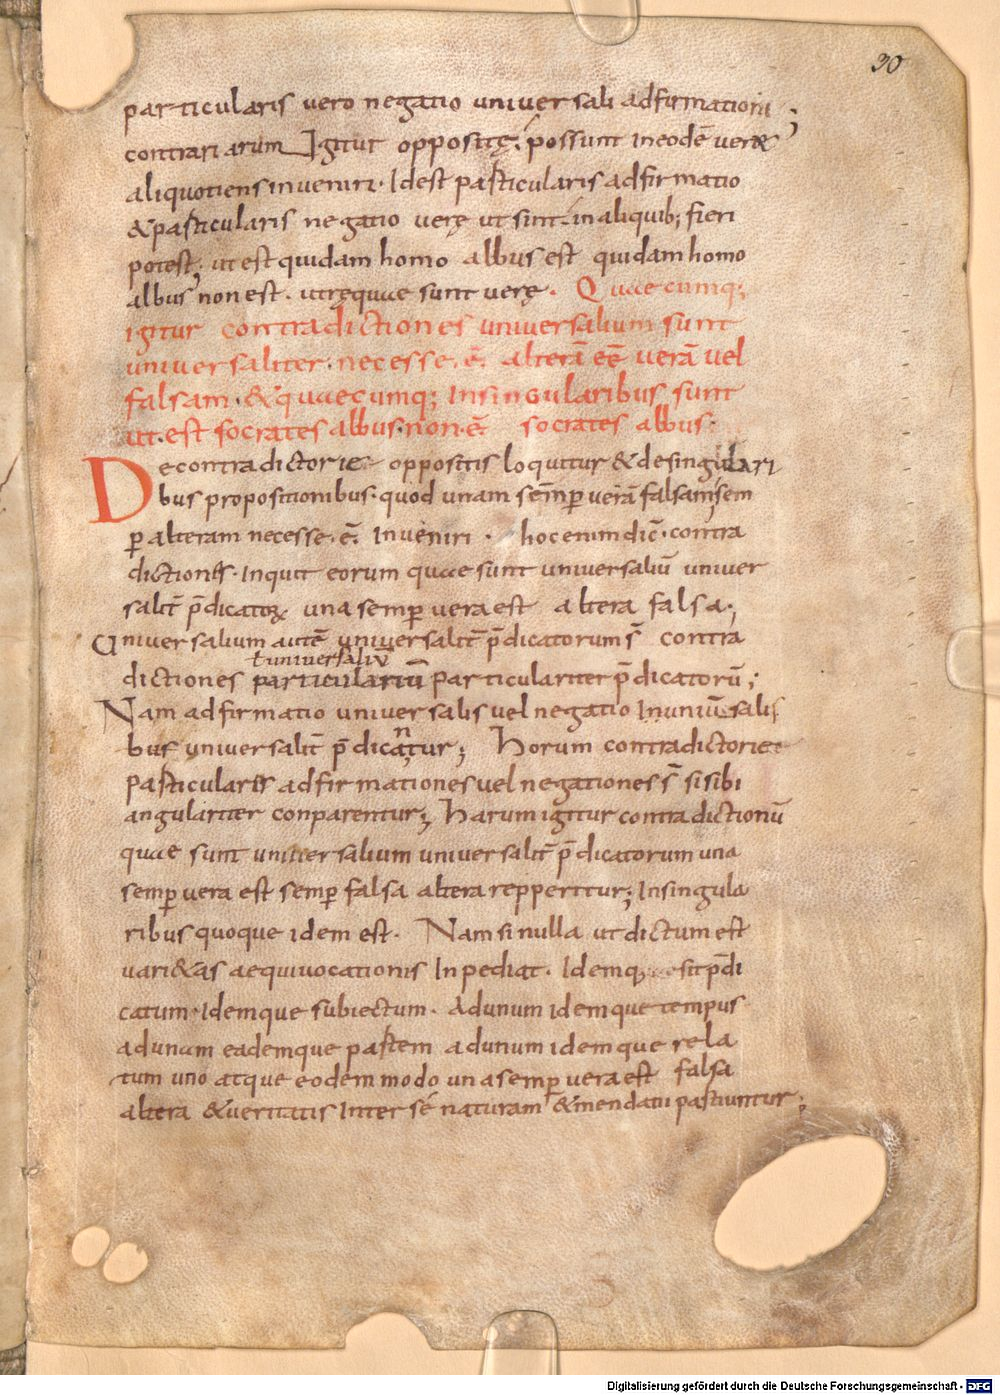 30
particularis vero negatio universali adfirmationi;
contrariarum Igitur oppositę possunt ineodē verę
aliquotiens inveniri. Idest particularis adfirmatio
& particularis negatio verę ut sint in aliquib; fieri
potest; ut est quidam homo albus est quidam homo
albus non est. utręquae sunt verę. Quaecumq;
igitur contradictiones universalium sunt
universaliter. necesse. ē. alterā eē verā vel
falsam. & quaecumq; Insingularibus sunt
ut. est socrates albus. non. ē. socrates albus.
Decontradictorie oppositis loquitur & desingulari
bus propositionibus. quod unam semp verā falsam sem
p alteram necesse. ē. Inveniri. hoc enim dic̄. contra
dictiones. Inquit eorum quae sunt universaliū univer
salit̄ p̄dicator una semp vera est altera falsa;
Universalium autē universalit̄ p̄dicatorum s̄ contra
ł universaliū
dictiones particulariū particulariter p̄dicatorū;
Nam adfirmatio universalis vel negatio Inuniv̄sali
bus universalit̄ p̄dicantur; Horum contradictorie
particulares adfirmationes vel negationes s̄ si sibi
angulariter conparentur; Harum igitur contradictionū
quae sunt universalium universalit̄ p̄dicatorum una
semp vera est semp falsa altera repperitur; Insingula
ribus quoque idem est. Nam si nulla ut dictum est
vari&as aequivocationis Inpediat. Idemq; sit p̄di
catum. Idemque subiectum. Adunum idemque tempus
adunam eademque partem adunum idemque rela
tum uno atque eodem modo una semp vera est falsa
altera & veritatis Inter se naturam & mendatii partiuntur;
Digitalisierung gefördert durch die Deutsche Forschungsgemeinschaft - DFG